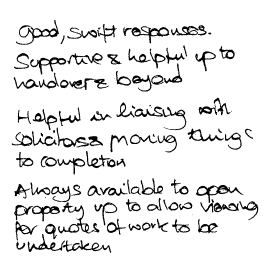 Good, swift responses.
Supportive & helpful up to
handover & beyond
Helpful in liaising with
solicitors & moving things
to completion
Always available to open
property up to allow viewing
for quotes of work to be
undertaken